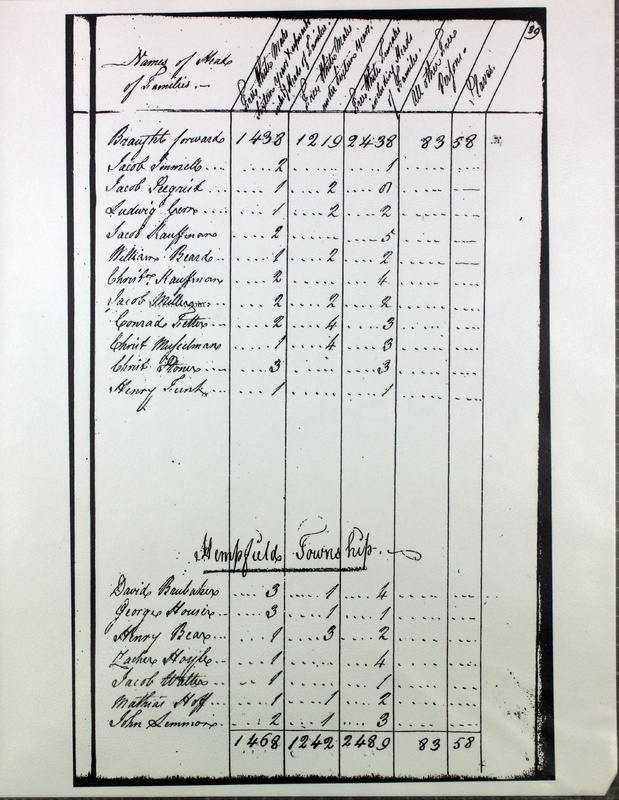 Names of Heads of Families.— Free White Males Sixteen Years & upwards includg Heads of Families. Free White Males under Sixteen Years. Free White Females including Heads of Families All other Free Persons. Slaves. 39
Braught forward 1438 1219 2438 83 58
Jacob 2 1
Jacob 1 2 8
Ludwig 1 2 2
Jacob Kauffman 2 5
William Beard 1 2 2
Christn Kauffman 2 4
Jacob Miller 2 2 2
Conrad Fetter 2 4 3
Christ Musselman 1 4 3
Christ Stoner 3 3
Henry Funk 1 1
Hempfield Township.
David Brubaker 3 1 4
George Houser 3 1 1
Henry Bear 1 3 2
Zacher Hoyle 1 4
Jacob Walter 1 1
Mathias Hoff 1 1 2
John Lemmon 2 1 3
1468 1242 2489 83 58